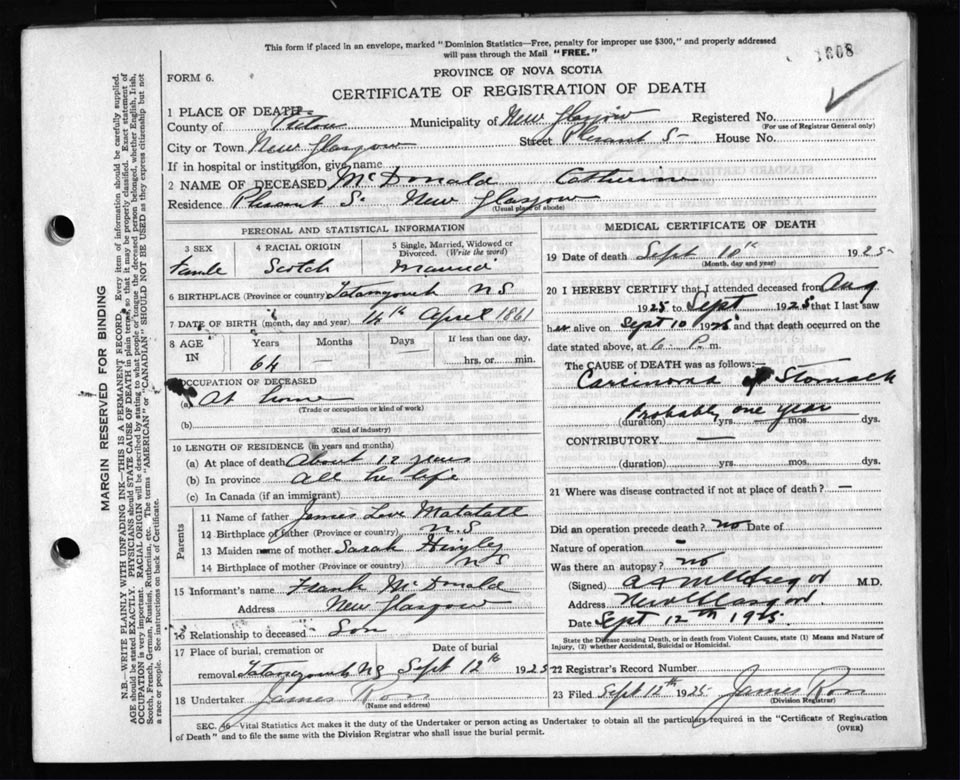 This form if placed in an envelope, marked "Dominion Statistics—Free, penalty for improper use $300," and properly addressed
will pass through the Mail "FREE."
1608
FORM 6.
PROVINCE OF NOVA SCOTIA
CERTIFICATE OF REGISTRATION OF DEATH
1 PLACE OF DEATH—
County of Pictou Municipality of New Glasgow Registered No.
(For use of Registrar General only)
City or Town New Glasgow Street Plesant S- House No.
If in hospital or institution, give name
2 NAME OF DECEASED McDonald Catherine
Residence Plesant S- New Glasgow
(Usual place of abode)
PERSONAL AND STATISTICAL INFORMATION
3 SEX 4 RACIAL ORIGIN 5 Single, Married, Widowed or Divorced. (Write the word)
Famle Scotch Married
6 BIRTHPLACE (Province or country) NS
7 DATE OF BIRTH (month, day and year) 14th April 1861
8 AGE IN Years Months Days If less than one day,
64 — hrs. or min.
9 OCCUPATION OF DECEASED
(a) At home
(Trade or occupation or kind of work)
(b)
(Kind of industry)
10 LENGTH OF RESIDENCE (in years and months)
(a) At place of death About 12 years
(b) In province All her life
(c) In Canada (if an immigrant)
Parents
11 Name of father James Love Matatall
12 Birthplace of father (Province or country) N.S
13 Maiden name of mother Sarah
14 Birthplace of mother (Province or country) NS
15 Informant's name Frank McDonald
Address New Glasgow
16 Relationship to deceased Son
17 Place of burial, cremation or removal Date of burial
NS Sept 12th 1925
18 Undertaker James Ross
(Name and address)
MEDICAL CERTIFICATE OF DEATH
19 Date of death Sept 10th 1925
(Month, day and year)
20 I HEREBY CERTIFY that I attended deceased from Aug
1925 to Sept 1925 that I last saw
her alive on Sept 10 1925 and that death occurred on
date stated above, at 6 P.m.
The CAUSE OF DEATH was as follows:
Carsinoma of Stomach
Probably one year
(duration) yrs. mos. dys.
CONTRIBUTORY —
(duration) yrs. mos. dys.
21 Where was disease contracted if not at place of death? —
Did an operation precede death? no Date of
Nature of operation -
Was there an autopsy? no
(Signed) M.D.
Address New Glasgow
Date Sept 12th 1925.
State the Disease causing Death, or in death from Violent Causes, state (1) Means and Nature of
Injury, (2) whether Accidental, Suicidal or Homicidal.
22 Registrar's Record Number
23 Filed Sept 12th 1925 James Ross
(Division Registrar)
SEC. 46 Vital Statistics Act makes it the duty of the Undertaker or person acting as Undertaker to obtain all the particulars required in the "Certificate of Registration
of Death" and to file the same with the Division Registrar who shall issue the burial permit.
(OVER)
MARGIN RESERVED FOR BINDING
N.B.—WRITE PLAINLY WITH UNFADING INK—THIS IS A PERMANENT RECORD. Every item of information should be carefully supplied.
AGE should be stated EXACTLY. PHYSICIANS should STATE CAUSE OF DEATH in plain terms, so that it may be properly classified. Exact statement of
OCCUPATION is very important. RACIAL ORIGIN will be described by stating to what people or tongue the deceased person belonged, whether English, Irish,
Scotch, French, German, Russian, Ruthenian, etc. The terms "AMERICAN" or "CANADIAN" SHOULD NOT BE USED as they express citizenship but not
a race or people. See instructions on back of Certificate.